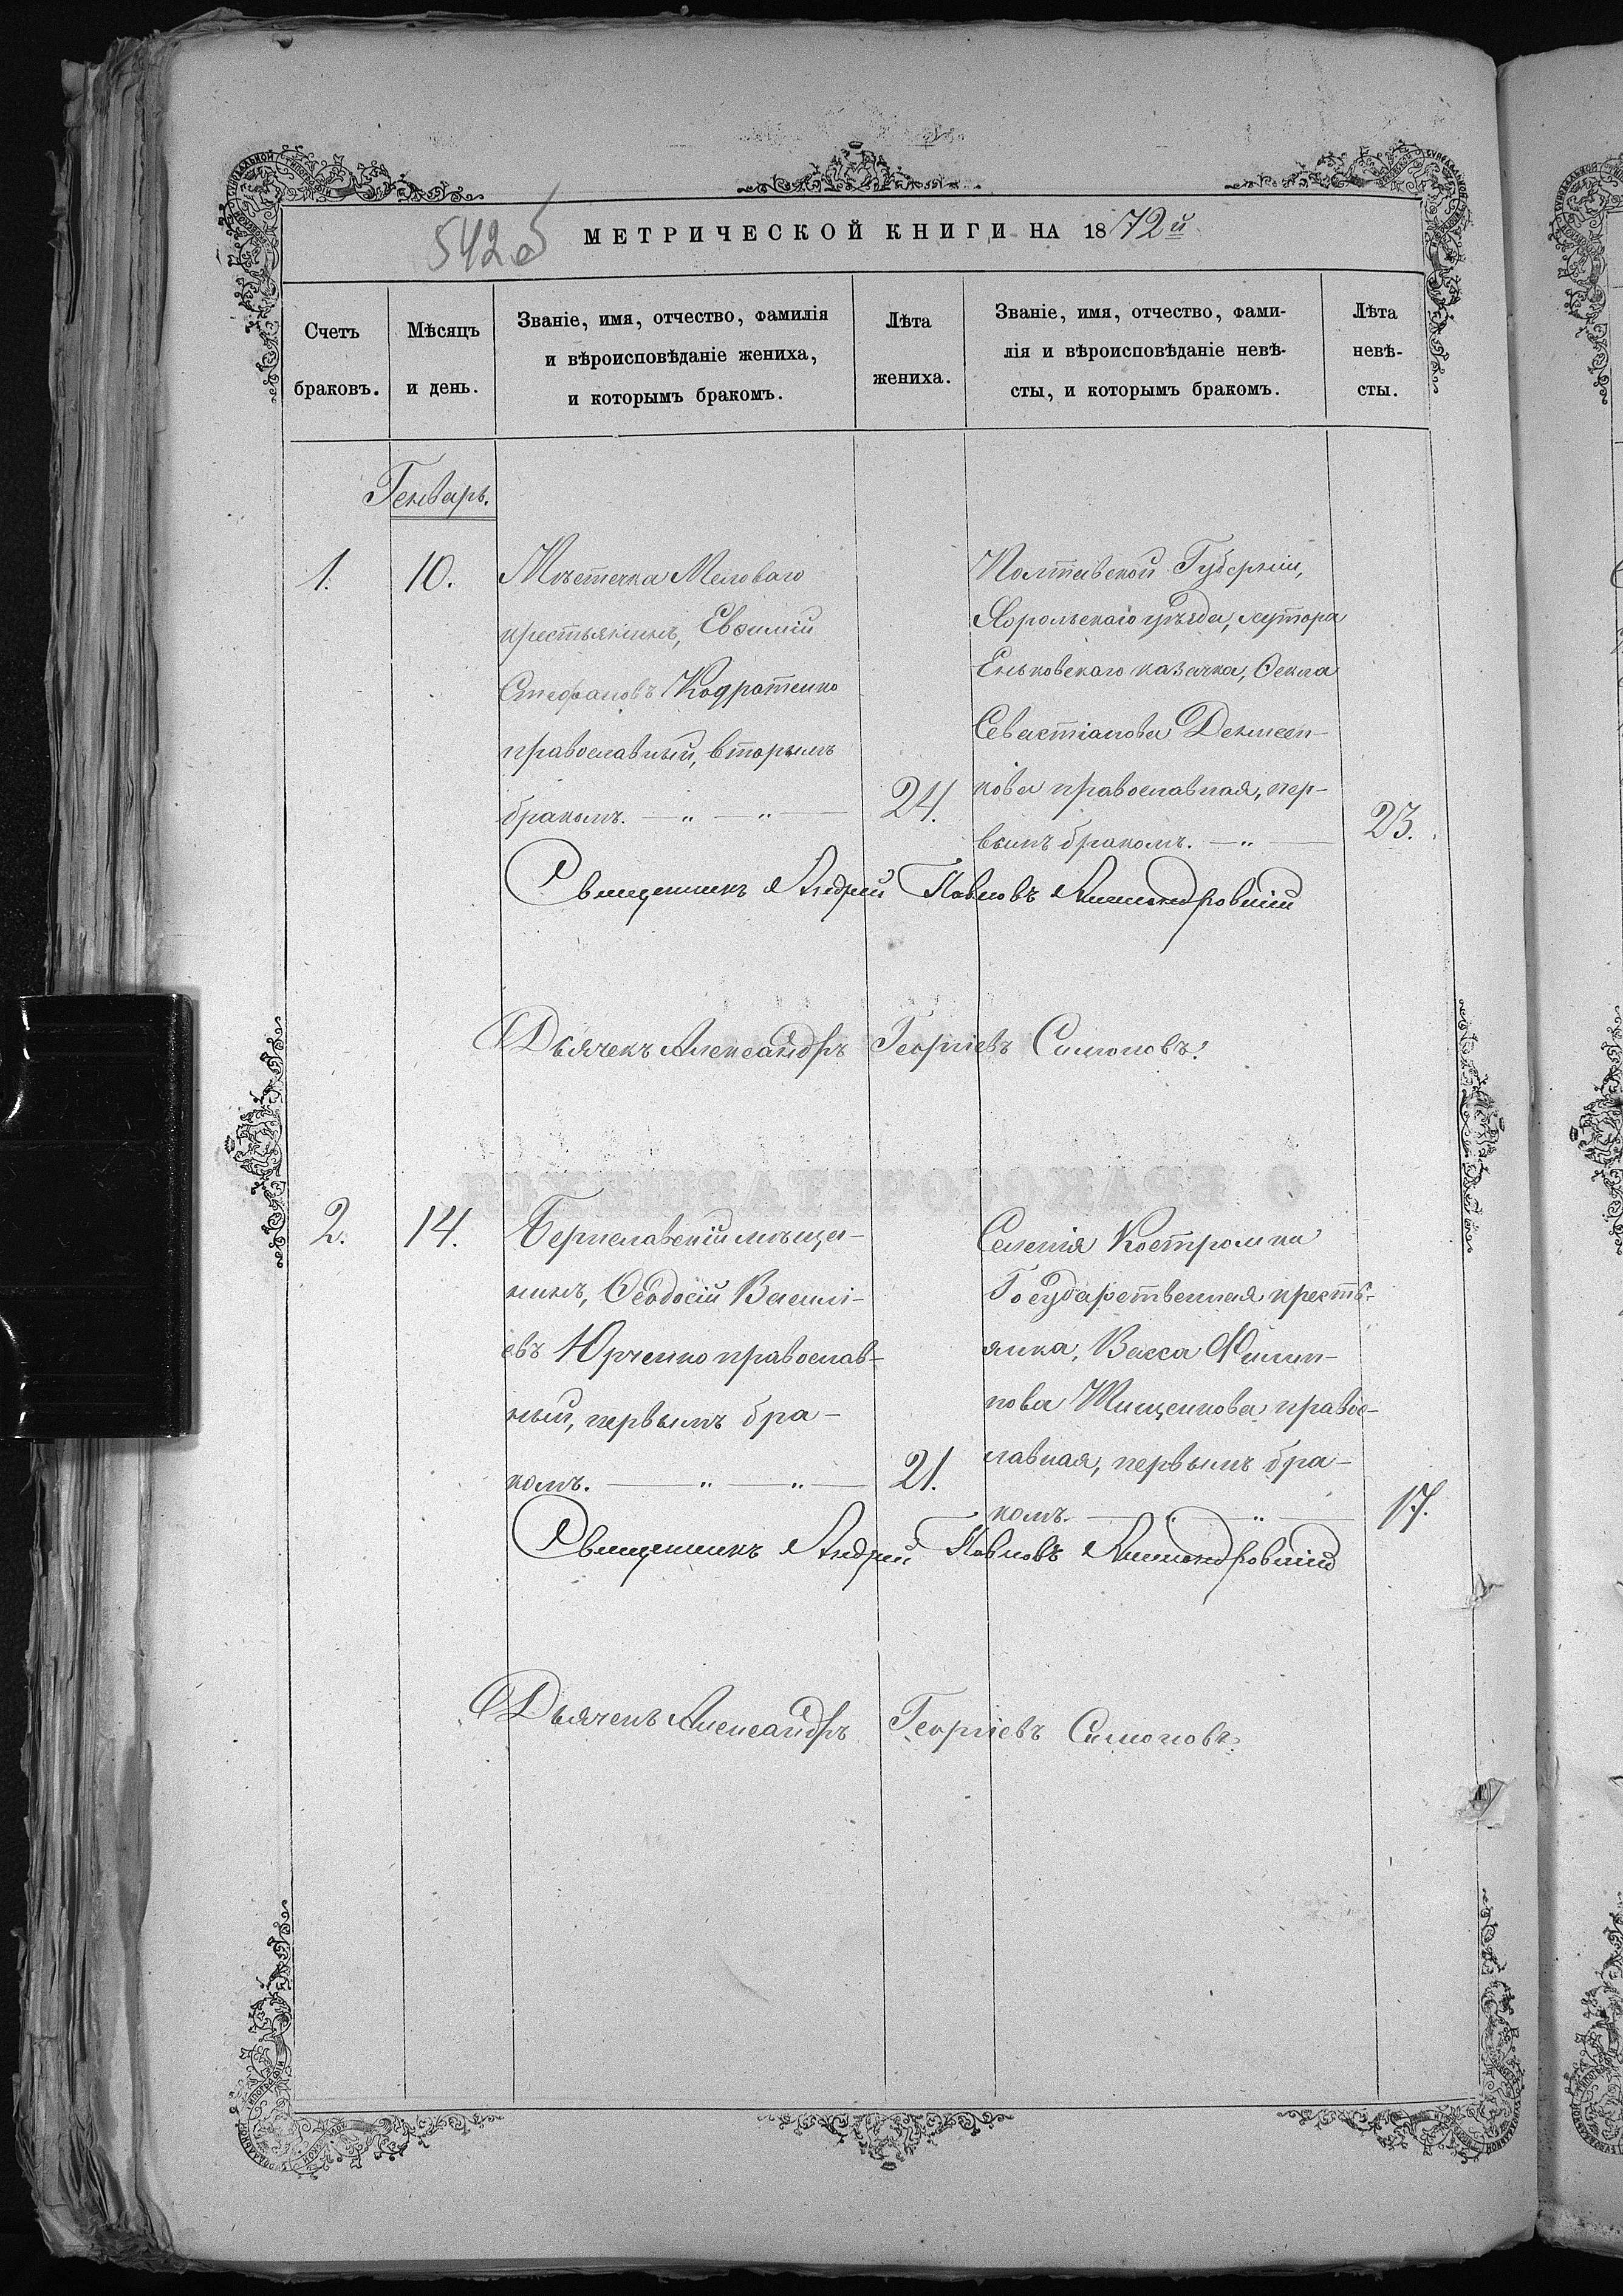 542 об
МЕТРИЧЕСКОЙ КНИГИ НА 1872й
Счетъ браковъ.
Мѣсяцъ и день.
Званіе, имя, отчество, фамилія
и вѣроисповѣданіе жениха,
и которымъ бракомъ.
Лѣта жениха.
Званіе, имя, отчество, фами-
лія и вѣроисповѣданіе невѣ-
сты, и которымъ бракомъ.
Лѣта
невѣ-
сты.
Генварь.
1.
10.
Мѣстечка Меловаго
крестьянинъ, Евѳимій
Стефановъ Кодратенко
православный, вторымъ
бракомъ. — „ — „ —
24.
Полтавской Губерніи,
Хорольскаго уѣзда, хутора
Еньковскаго казачка, Ѳекла
Севастіанова
кова православная, пер-
вымъ бракомъ. — „ —
23.
Священникъ Андрей Павловъ Александровскій
Дьячекъ Александръ Георгіевъ Симоновъ.
2.
14.
Бериславскій мѣща-
нинъ, Ѳеодосій Василі-
евъ Юрченко православ-
ный, первымъ бра-
комъ. — „ — „ —
21.
Селенія Костромки
Государственная кресть-
янка, Васса Филип-
пова Тищенкова правос-
лавная, первымъ бра-
комъ. — „ — „ —
17.
Священникъ Андрей Павловъ Александровскій
Дьячекъ Александръ Георгіевъ Симоновъ.